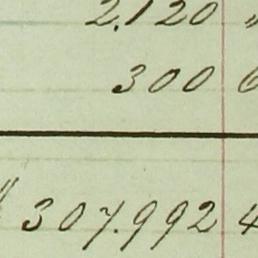 2.120 "
300 6
307.992 4